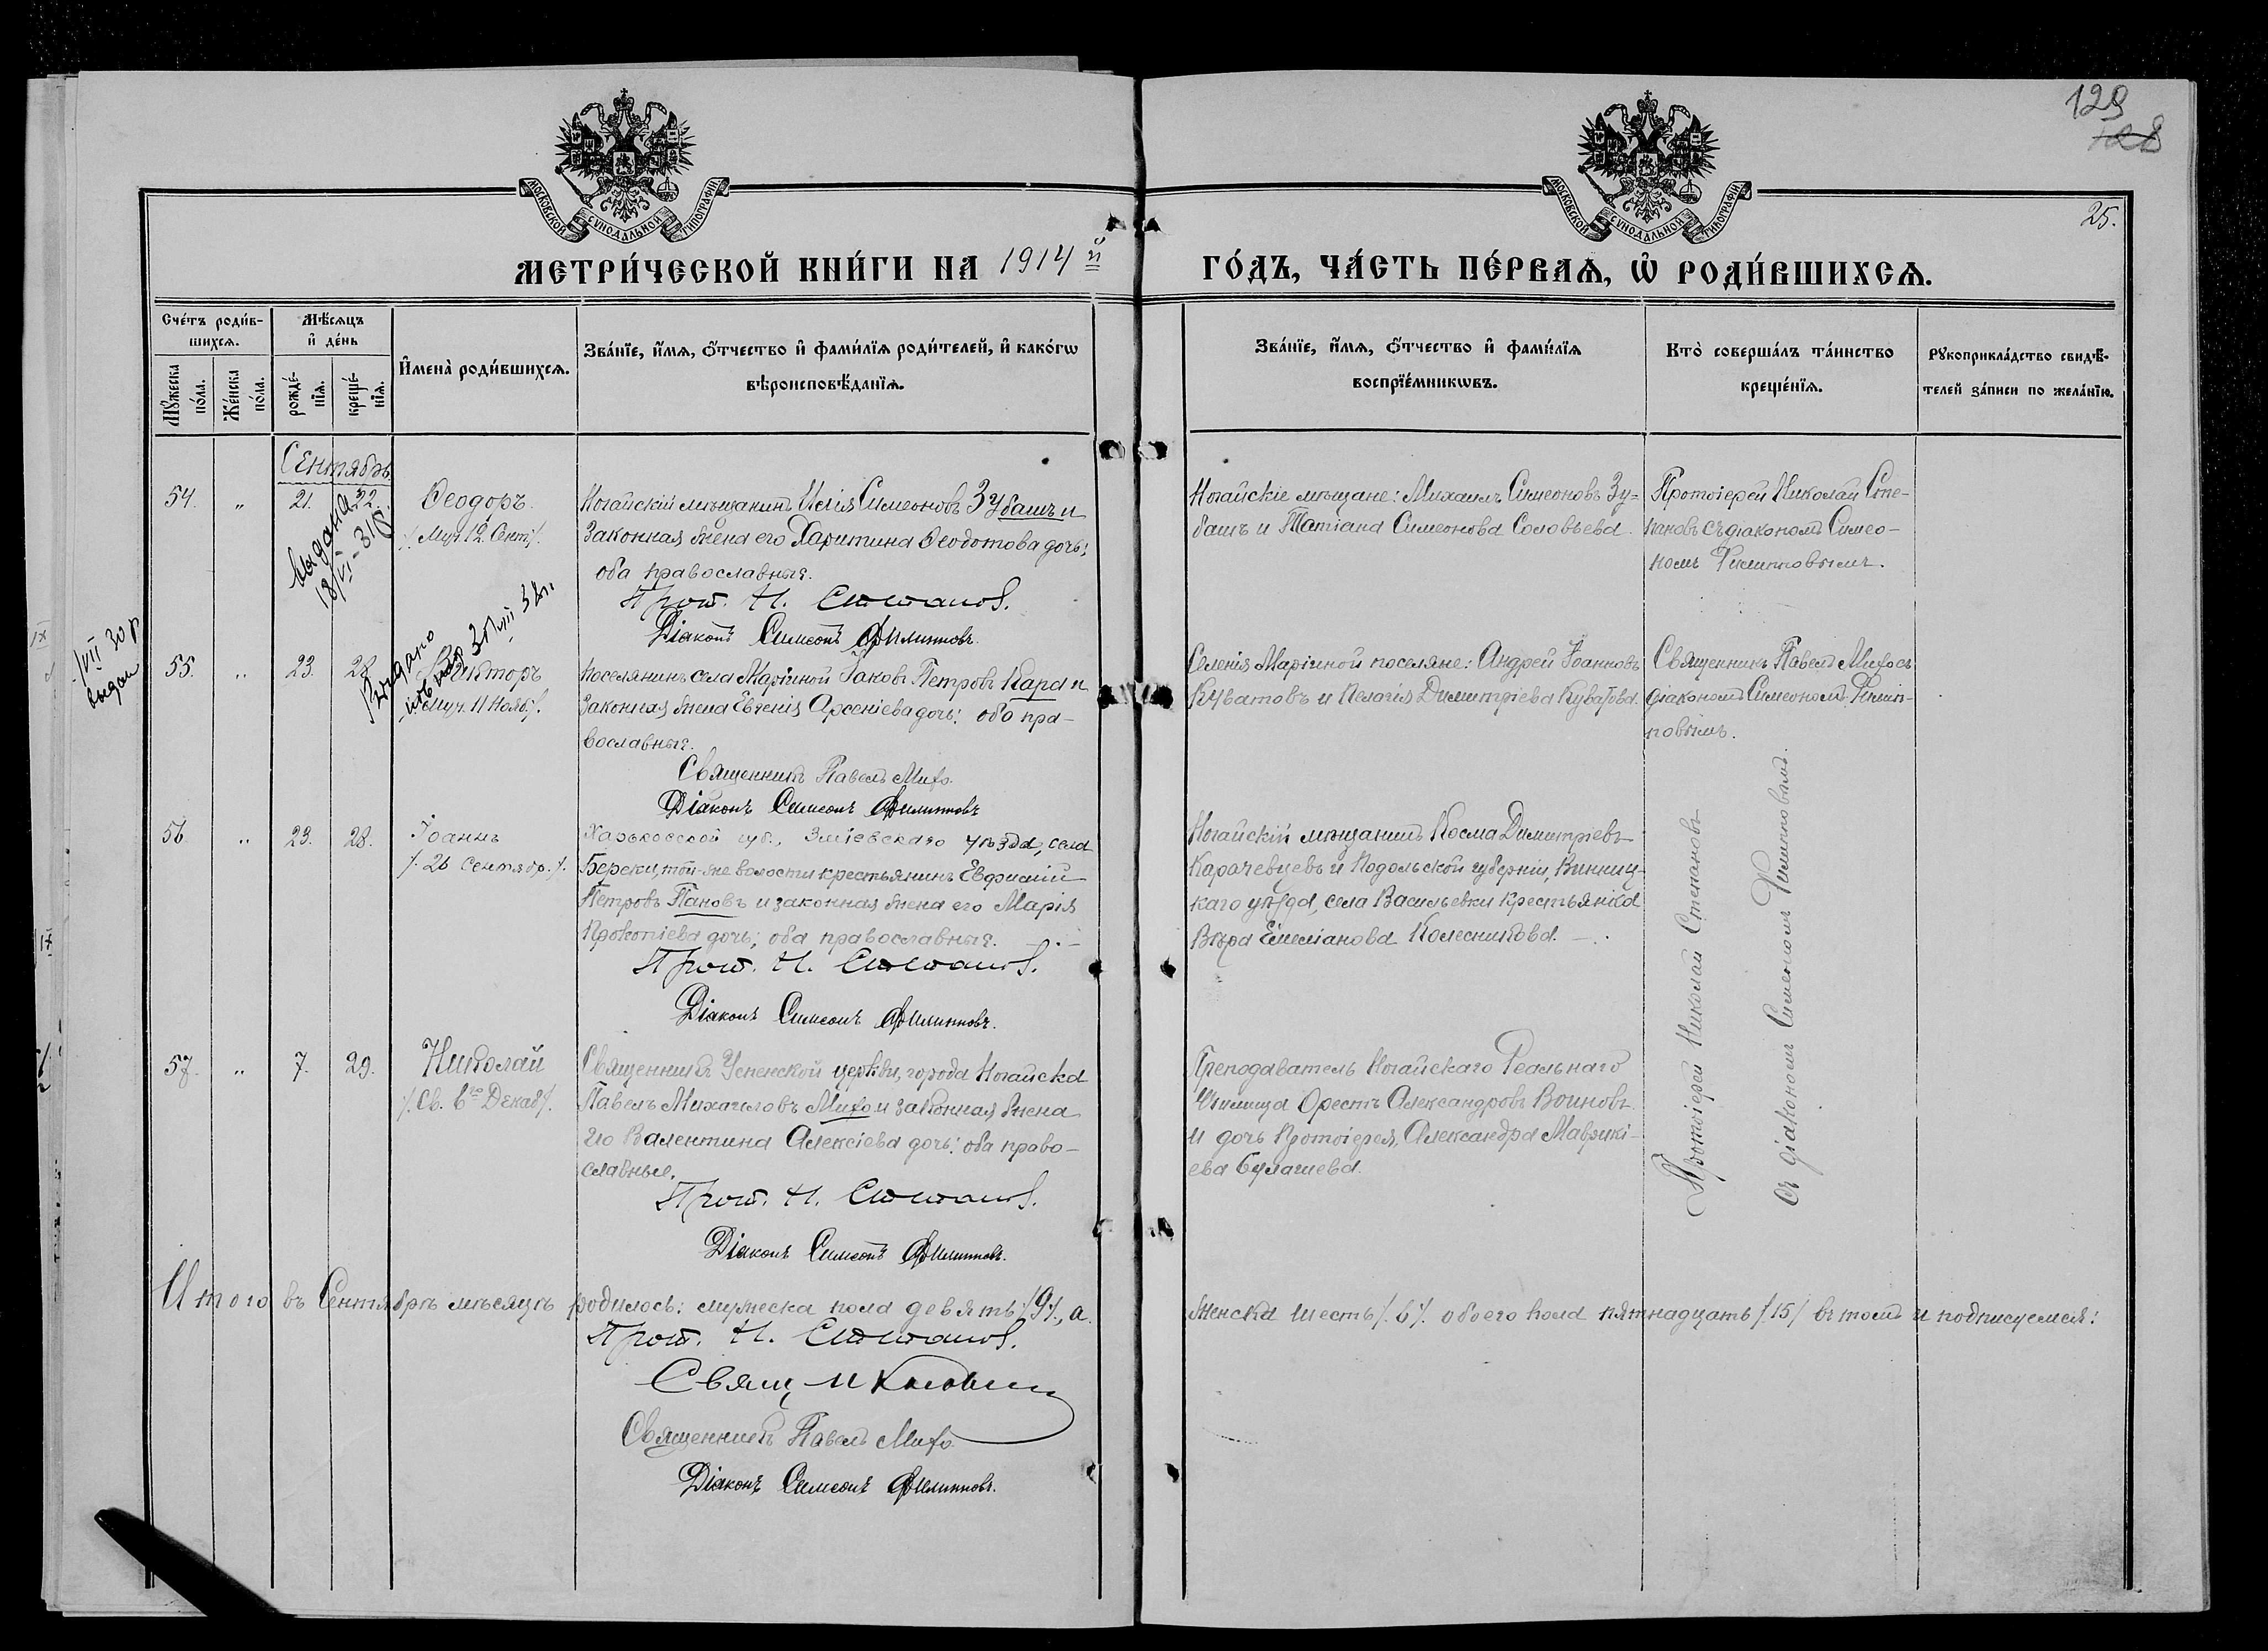 129
128
25.
МОСКОВСКОЙ СѴНОДАЛЬНОЙ ТИПОГРАФІИ
МОСКОВСКОЙ СѴНОДАЛЬНОЙ ТИПОГРАФІИ
МЕТРИ́ЧЕСКОЙ КНИ́ГИ НА 1914 й
ГО́ДЪ, ЧА́СТЬ ПЕ́РВАѦ, Ѡ҆ РОДИ́ВШИХСѦ.
Сче́тъ роди́в-
шихсѧ.
Мꙋ́жеска по́ла.
Же́нска по́ла.
Мѣ́сѧцъ
и҆ де́нь
рожде́-
нїѧ.
креще́-
нїѧ.
И҆мена̀ роди́вшихсѧ.
Зва́нїе, и҆́мѧ, ѻ҆́тчество и҆ фами́лїѧ роди́телей, и҆ како́гѡ
вѣроисповѣ́данїѧ.
Зва́нїе, и҆́мѧ, ѻ҆́тчество и҆ фами́лїѧ
воспрїе́мникѡвъ.
Кто̀ соверша́лъ та́инство
креще́нїѧ.
Рꙋкоприкла́дство свидѣ́-
телей за́писи по жела́нїю.
Сентябрь
54. „ 21. 22. Ѳеодоръ.
/. Муч. 12 Сент./.
Ногайскій мѣщанинъ Илія Симеоновъ Зубашъ и
законная жена его Харитина Ѳеодотова дочь;
оба православные.
Прот. Н. Степановъ.
Діаконъ Симеонъ Филипповъ.
Ногайскіе мѣщане: Михаилъ Симеоновъ Зу-
башъ и Татіана Симеонова Соловьева.
Протоіерей Николай Сте-
пановъ съ діакономъ Симео-
номъ Филипповымъ.
Выдана
18/VI-31р
Выдано
VIII 32р.
/VII 30 р
выдан
55. „ 23. 28. Викторъ
Муч. 11 Нояб./.
Поселянинъ села Маріиной Іаковъ Петровъ Кара и
законная жена Евгенія Арсеніева дочь; оба пра-
вославные.
Священникъ Павелъ Мифо.
Діаконъ Симеонъ Филипповъ
Селенія Маріиной поселяне: Андрей Іоанновъ
Куватовъ и Пелагія Димитріева Куватова.
Священникъ Павелъ Мифо съ
діакономъ Симеономъ Филип-
повымъ.
56. „ 23. 28. Іоаннъ
/. 26 Сентябр./.
Харьковской губ., Зміевскаго уѣзда, села
Береки, той-же волости крестьянинъ Евфимій
Петровъ Пановъ и законная жена его Марія
Прокопіева дочь; оба православные.
Прот. Н. Степановъ.
Діаконъ Симеонъ Филипповъ.
Ногайскій мѣщанинъ Косма Димитріевъ
Карачевцевъ и Подольской губерніи, Винниц-
каго уѣзда, села Васильевки крестьянка
Вѣра Емеліанова Колесникова.
Протоіерей Николай Степановъ
съ діакономъ Симеономъ Филипповымъ.
57. „ 7. 29. Николай
/. Св. 6го Декаб/.
Священникъ Успенской церкви, города Ногайска
Павелъ Михаиловъ Мифо и законная жена
его Валентина Алексіева дочь; оба право-
славные.
Прот. Н. Степановъ.
Діаконъ Симеонъ Филипповъ.
Преподаватель Ногайскаго Реальнаго
Училища Орестъ Александровъ Воиновъ
и дочь Протоіерея, Александра Маврикі-
ева Булашева.
Итого въ Сентябрѣ мѣсяцѣ родилось: мужеска пола девять /9/., а
женска шесть /. 6 /. обоего пола пятнадцать /15/ въ томъ и подписуемся:
Прот. Н. Степановъ.
Свящ.
Священникъ Павелъ Мифо
Діаконъ Симеонъ Филипповъ.